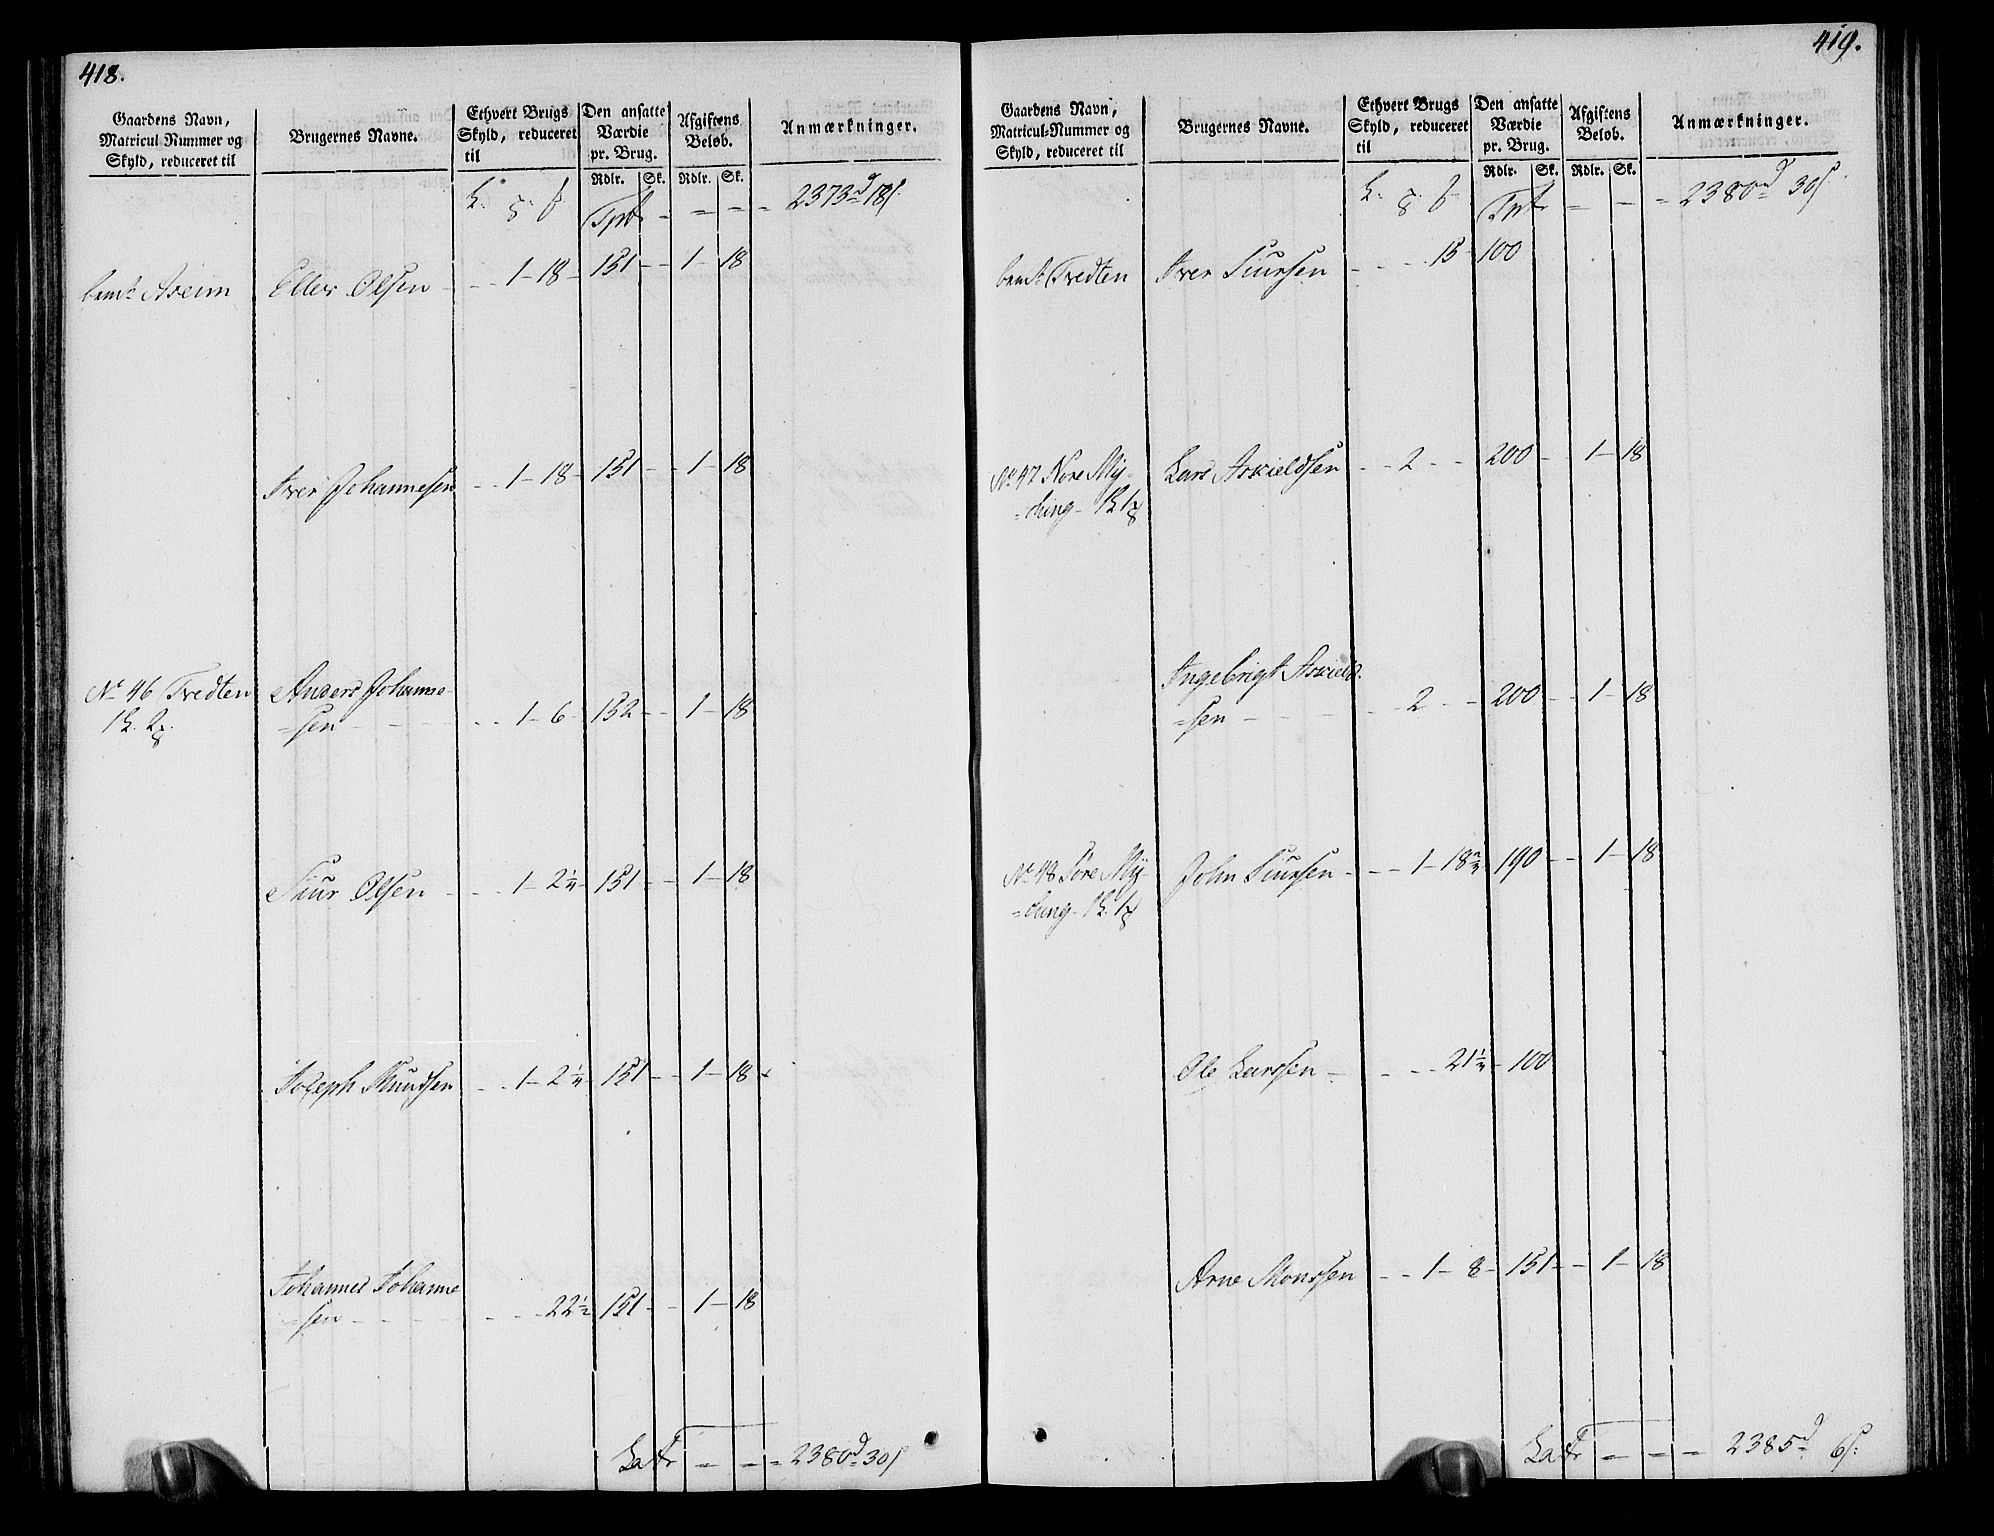 418.
Gaardens Navn,
Matricul-Nummer og
Skyld, reduceret til
Brugernes Navne.
Ethvert Brugs
Skyld, reduceret
til
Den ansatte
Værdie
pr. Brug.
Afgiftens
Beløb.
Anmærkninger.
Rdlr. Sk. Rdlr. Sk.
Tprt - - - - 2373 d 18 s.
Aseim Eller Olsen - - 1 - 18 - 151 - - 1 - 18
Iver Johannesen - - 1 - 18 - 151 - - 1 - 18
No 46 Tredten Anders Johanne-
=sen - - - - 1 - 6 - 152 - - 1 - 18
Siur Olsen - - - 1 - 2 1/4 - 151 - - 1 - 18
Joseph Knudsen - - 1 - 2 1/4 - 151 - - 1 - 18
Johannes Johanne
=sen - - - - - - 22 1/2 - 151 - - 1 - 18
Latr - - - 2380 d 30 s
419.
Gaardens Navn,
Matricul-Nummer og
Skyld, reduceret til
Brugernes Navne.
Ethvert Brugs
Skyld, reduceret
til
Den ansatte
Værdie
pr. Brug.
Afgiftens
Beløb.
Anmærkninger.
Rdlr. Sk. Rdlr. Sk.
Tprt - - - 2380 d 30 s.
Tredten Iver Siursen - - - 15 - 100
No 47 Nore My- Lars Askieldsen - - 2 - - 200 - - 1 - 18
Ingebrigt Askield-
=sen - - - - 2 - - 200 - - 1 - 18
No 48 Søre My- John Siursen - - - 1 - 18 3/4 - 190 - - 1 - 18
Ole Larssen - - - - 21 1/4 - 100
Arne Monssen - - 1 - 8 - 151 - - 1 - 18
Latr - - - 2385 d 6 s.